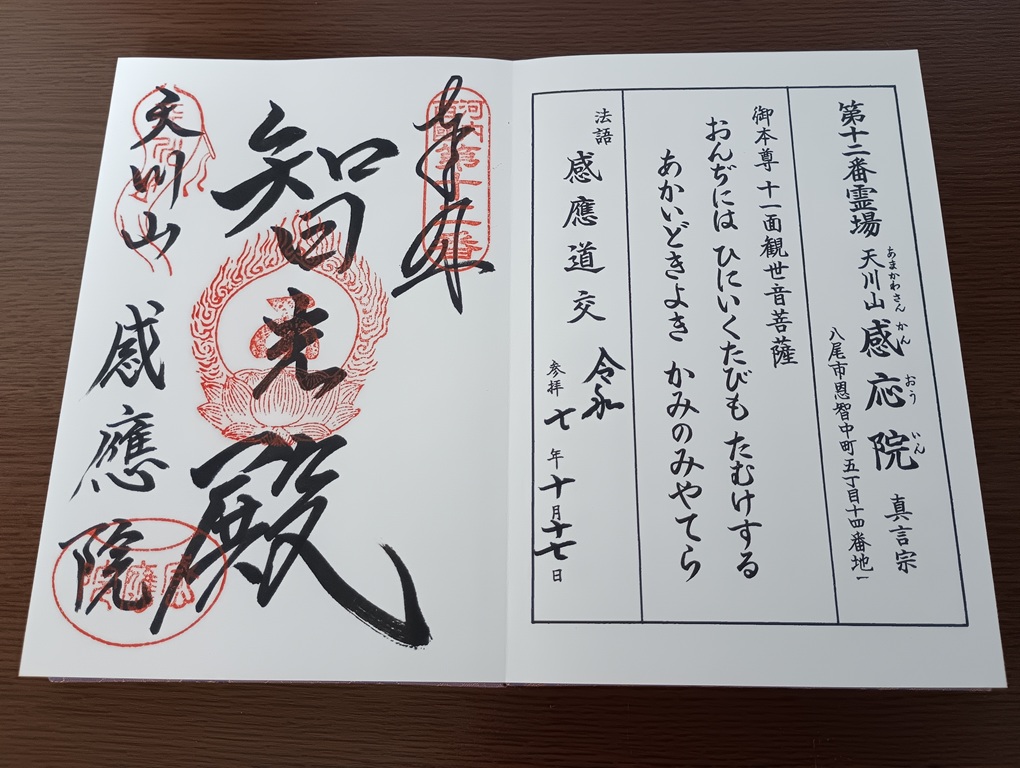 第十二番霊場 天川山 感応院 真言宗
あまかわさん かん おう いん
八尾市恩智中町五丁目十四番地一
御本尊 十一面観世音菩薩
おんぢには ひにいくたびも たむけする
あかいどきよき かみのみやてら
法語 感應道交
令和
参拝 七年十月十七日
奉拝
河内西國
第十二番
智光殿
天川山 感應院